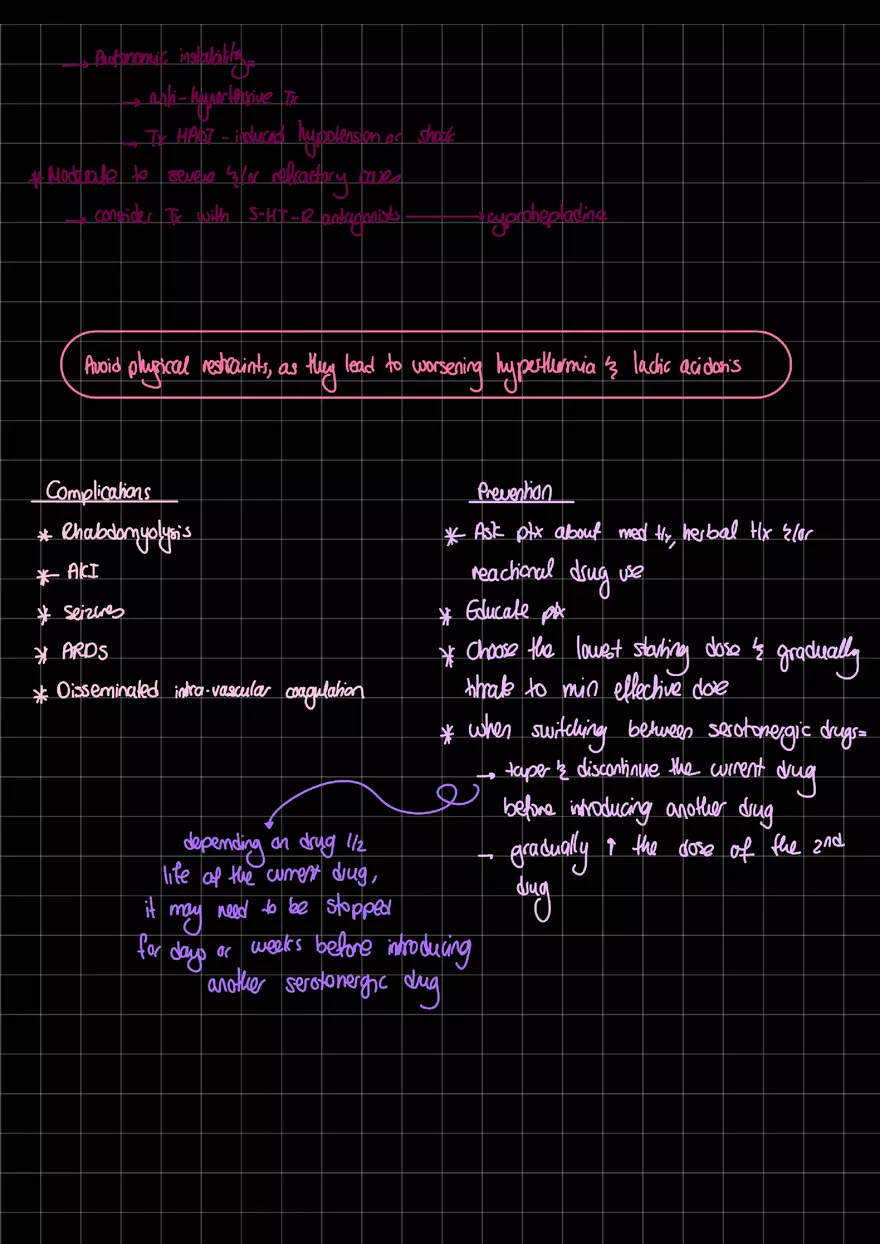 → Autonomic instability=
→ anti-hypertensive Tx
→ Tx MAOI-induced hypotension or shock
* Moderate to severe &/or refractory cases
→ consider Tx with 5-HT-R antagonists → cyproheptadine
Avoid physical restraints, as they lead to worsening hyperthermia & lactic acidosis
Complications
* Rhabdomyolysis
* AKI
* Seizures
* ARDS
* Disseminated intra-vascular coagulation
Prevention
* Ask ptx about med Hx, herbal Hx &/or
reactional drug use
* Educate ptx
* Choose the lowest starting dose & gradually
titrate to min effective dose
* when switching between serotonergic drugs=
→ taper & discontinue the current drug
before introducing another drug
→ gradually ↑ the dose of the 2nd
drug
depending on drug 1/2
life of the current drug,
it may need to be stopped
for days or weeks before introducing
another serotonergic drug